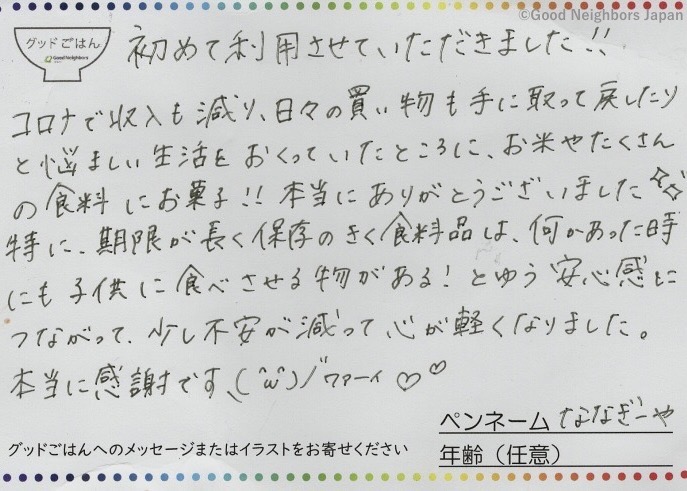 ©Good Neighbors Japan
グッドごはん
Good Neighbors
初めて利用させていただきました!!
コロナで収入も減り、日々の買い物も手に取って戻したり
と悩ましい生活をおくっていたところに、お米やたくさん
の食料にお菓子!!本当にありがとうございました
特に、期限が長く保存のきく食料品は、何かあった時
にも子供に食べさせる物がある!とゆう安心感に
つながって、少し不安が減って心が軽くなりました。
本当に感謝です、(^ω^)ノ゛ワァーイ♡♡
ペンネーム ななぎーや
グッドごはんへのメッセージまたはイラストをお寄せください
年齢(任意)